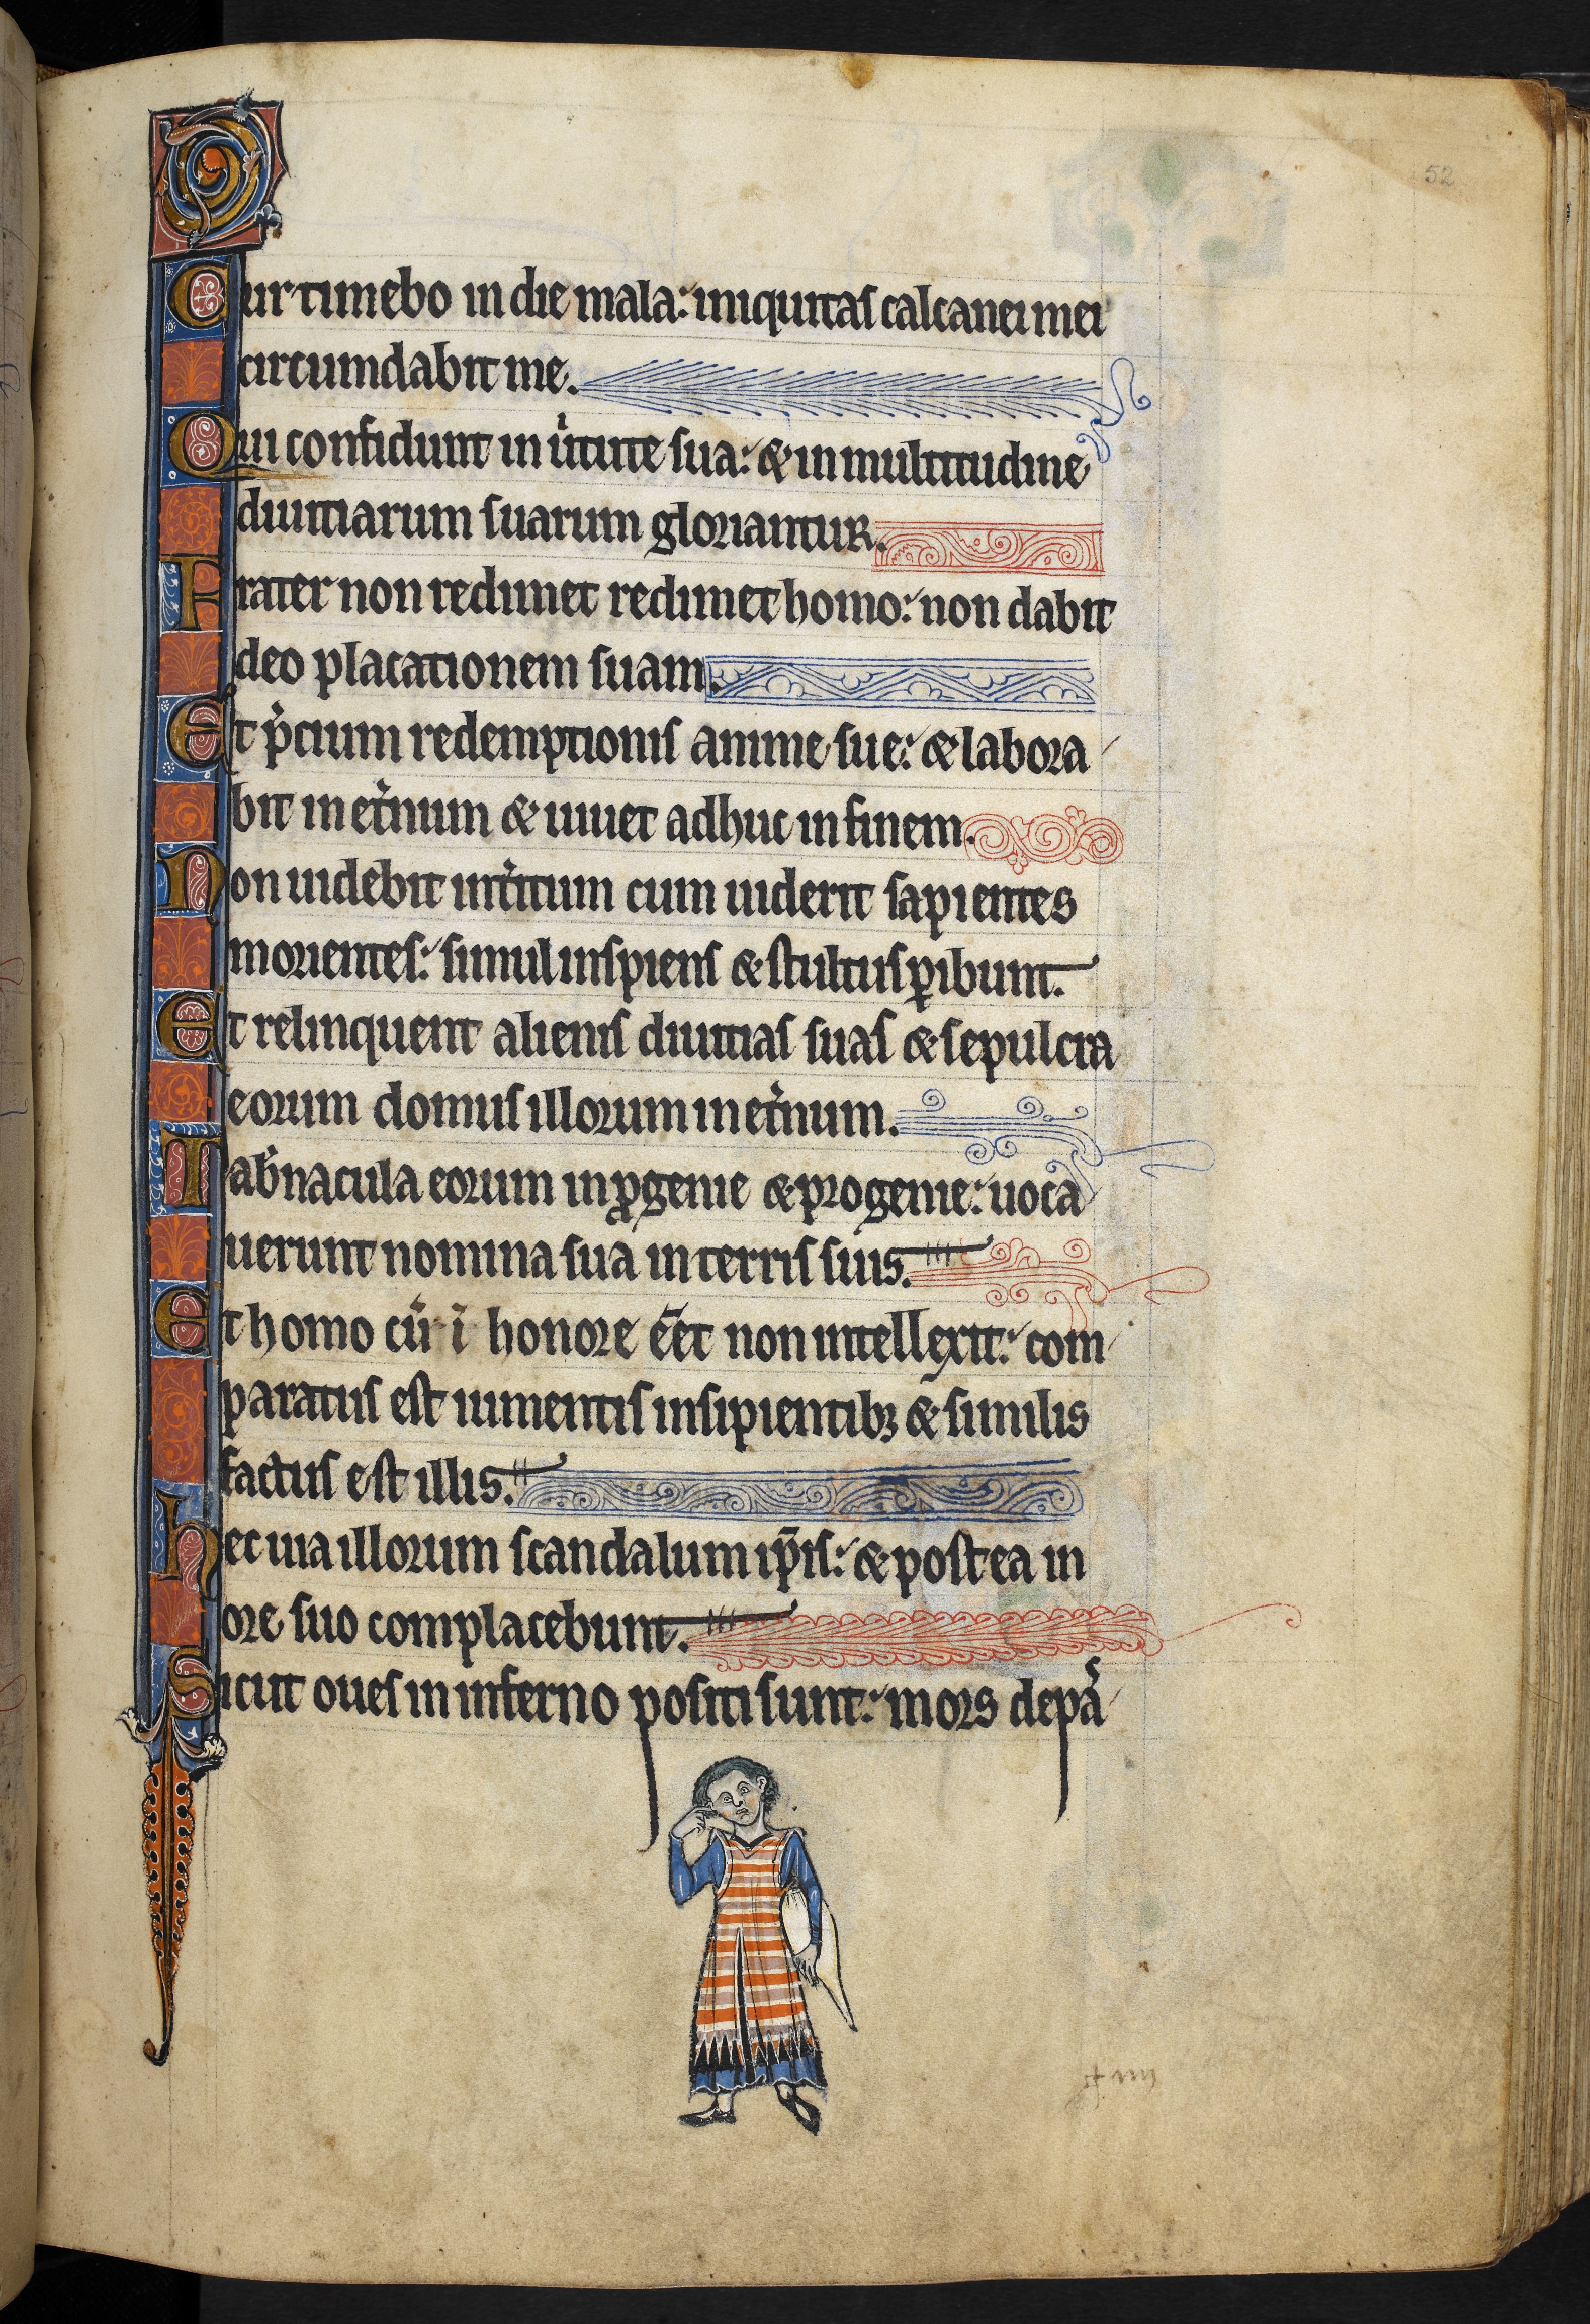 52
Cur timebo in die mala: iniquitas calcanei mei
circumdabit me.
Qui confidunt in u̍tute sua: & in multitudine
diuitiarum suarum gloriantur.
Frater non redimet redimet homo: non dabit
deo placationem suam.
Et p̍cium redemptionis anime sue: & labora
bit in et̍num & uiuet adhuc in finem.
Non uidebit int̍itum cum uiderit sapientes
morientes: simul inspiens & stultus ꝑibunt.
Et relinquent alienis diuitias suas & sepulcra
eorum domus illorum in et̍num.
Tab̍nacula eorum in ꝓgenie & progenie: uoca
uerunt nomina sua in terris suis.
Et homo cū ī honore eēt non intellexit: com
paratus est iumentis insipientibꝫ & similis
factus est illis.
Hec uia illorum scandalum ip̄is: & postea in
ore suo complacebunt.
Sicut oues in inferno positi sunt: mors depa̍